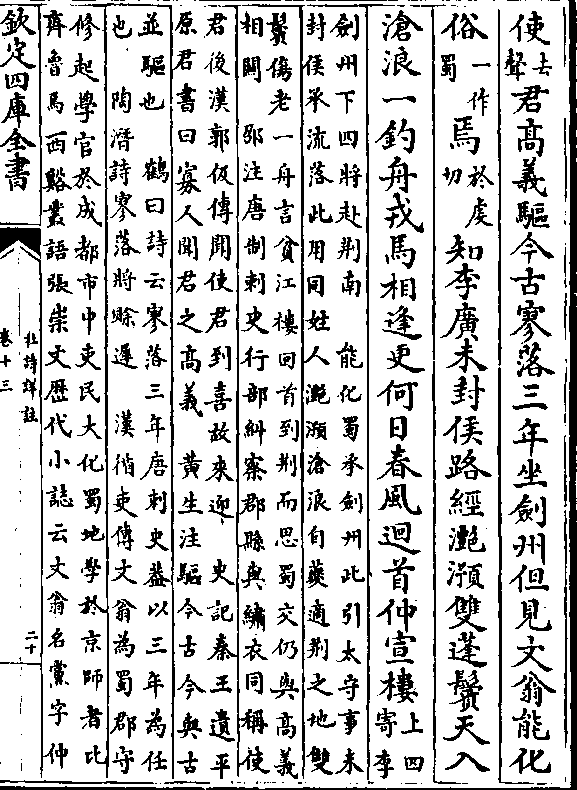 使去聲君高義驅今古寥落三年坐劍州但見文翁能化
俗一作蜀焉於虔切知李廣未封侯路經灩澦雙蓬鬢天入
滄浪一釣舟戎馬相逢更何日春風迴首仲宣樓上四寄李
劍州下四將赴荆南　能化蜀承劍州此引太守事未
封侯承流落此用同姓人灩澦滄浪自蘷適荆之地雙
鬢傷老一舟言貧江樓回首到荆而思蜀交仍與高義
相關　邵注唐制刺史行部糾察郡縣與繡衣同稱使
君後漢郭伋傳聞使君到喜故來迎　史記秦王遺平
原君書曰寡人聞君之高義　黄生注驅今古今與古
並驅也　鶴曰詩云寥落三年唐刺史蓋以三年為任
也　陶潛詩寥落將賒遲　漢循吏傳文翁為蜀郡守
修起學官於成都市中吏民大化蜀地學於京師者比
齊魯焉西谿叢語張崇文歷代小誌云文翁名黨字仲
欽定四庫全書
杜詩詳註
卷十三
二十